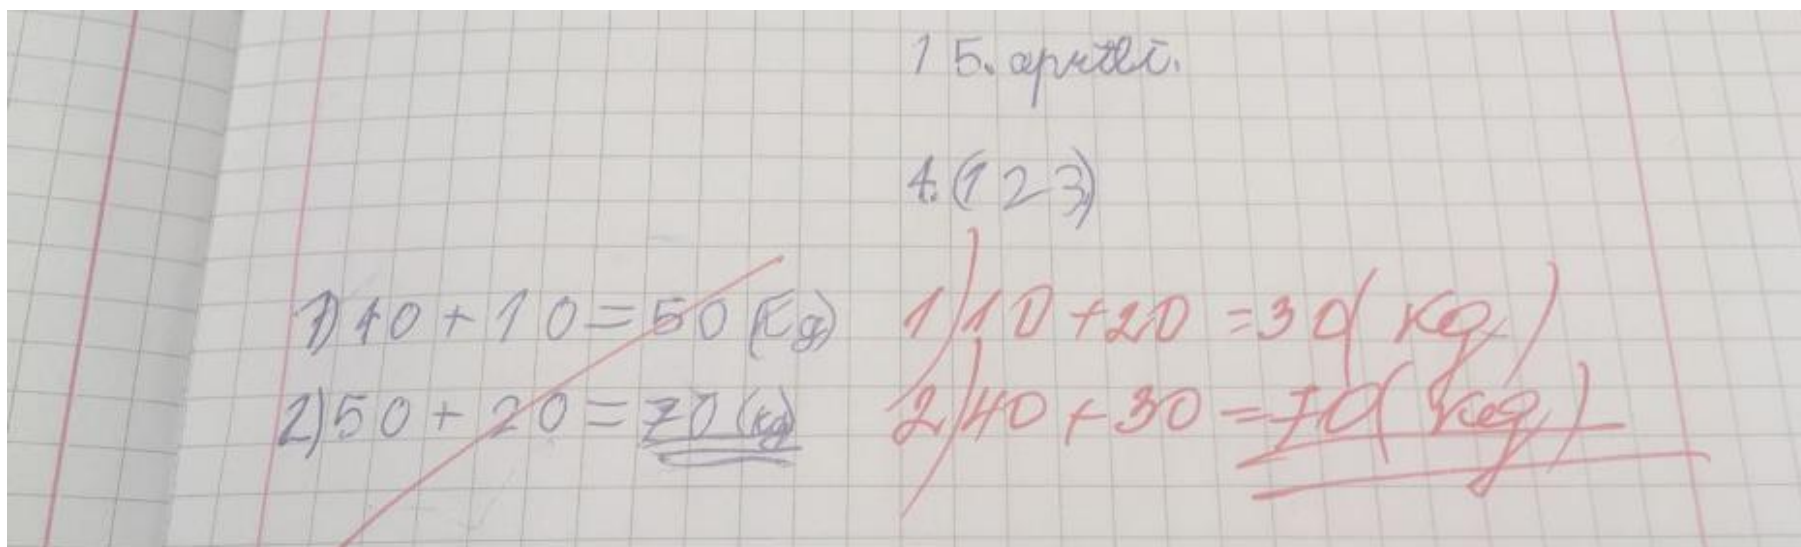 15. aprīlī.
4. (123)
1) 40 + 10 = 50 (kg) 1) 10 + 20 = 30 (kg)
2) 50 + 20 = 70 (kg) 2) 40 + 30 = 70 (kg)